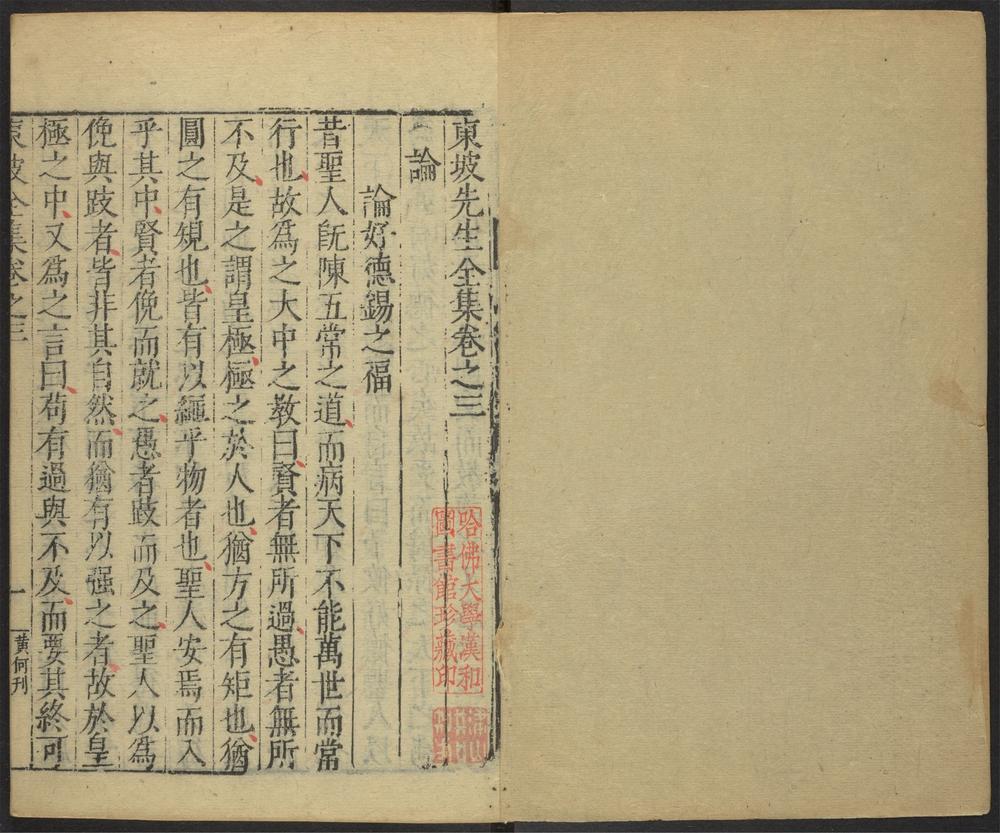 東坡先生全集卷之三
論
論好德錫之福
昔聖人旣陳五常之道而病天下不能萬世而常
行也故爲之大中之教曰賢者無所過愚者無所
不及是之謂皇極極之於人也猶方之有矩也猶
圓之有規也皆有以繩乎物者也聖人安焉而入
乎其中賢者俛而就之愚者跂而及之聖人以爲
俛與跂者皆非其自然而猶有以强之者故於皇
極之中又爲之言曰苟有過與不及而要其終可
東坡全集卷之三
一
黄何刋
哈佛大學漢和
圖書館珍藏印